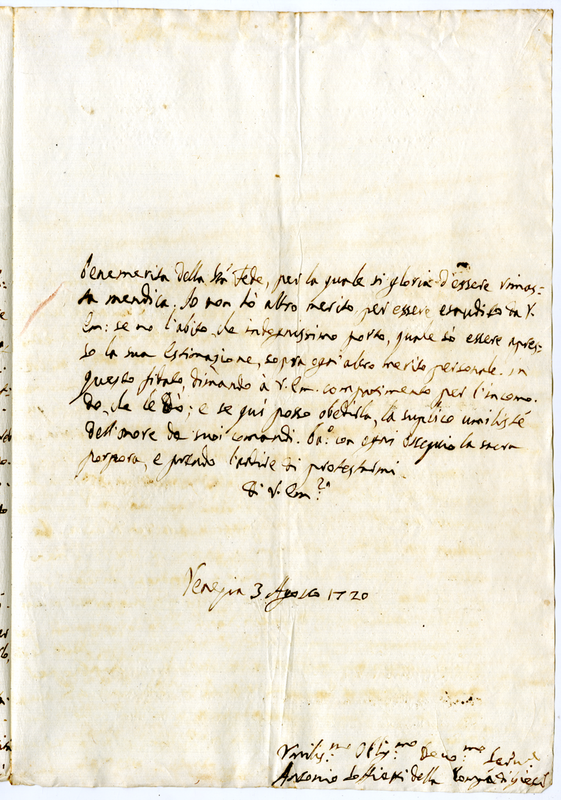 benemerita della S.ta Fede, per la quale si gloria d'essere rimas-
ta mendica. Io non hò altro merito per essere esaudito da V.
Em: se nò l'abito, che integerrimo porto, quale sò essere apres-
so la sua Estimazione, sopra ogni altro merito personale. in
questo fidato, dimando à V. Em. compatimento per l'incomo-
do, che le dò; e se qui posso obedirla, la suplico umiliss.te
dell'onore de suoi comandi. Ba.o con ogni ossequio la sacra
porpora, e prendo l'ardire di protestarmi
di V. Em.za
Venezia 3 Agosto 1720
Umiliss.mo Obb.mo Devo.mo
Antonio della